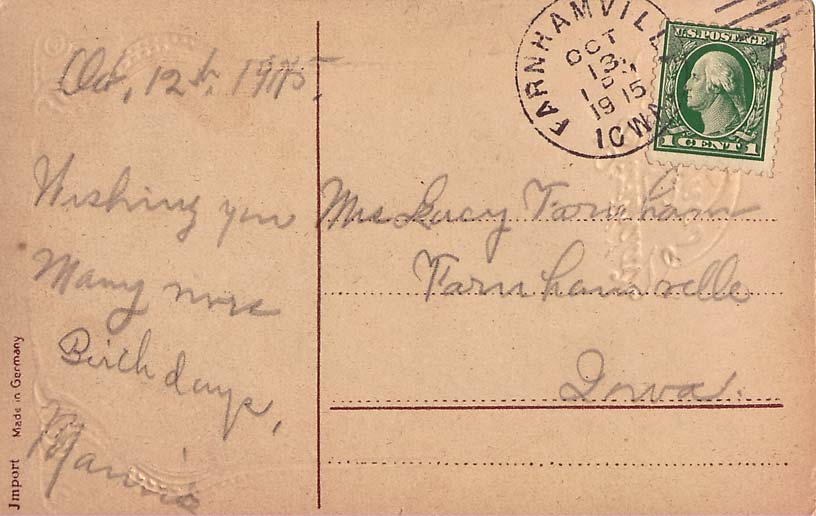 Oct, 12th, 1915,
Wishing you
Many more
Birthdays,
Mamie
FARNHAMVILL
OCT
13
1 P
1915
IOWA
U.S. POSTAGE
1 CENT 1
Mrs Lucy Farnham
Farnhamville
Iowa.
Jmport Made in Germany